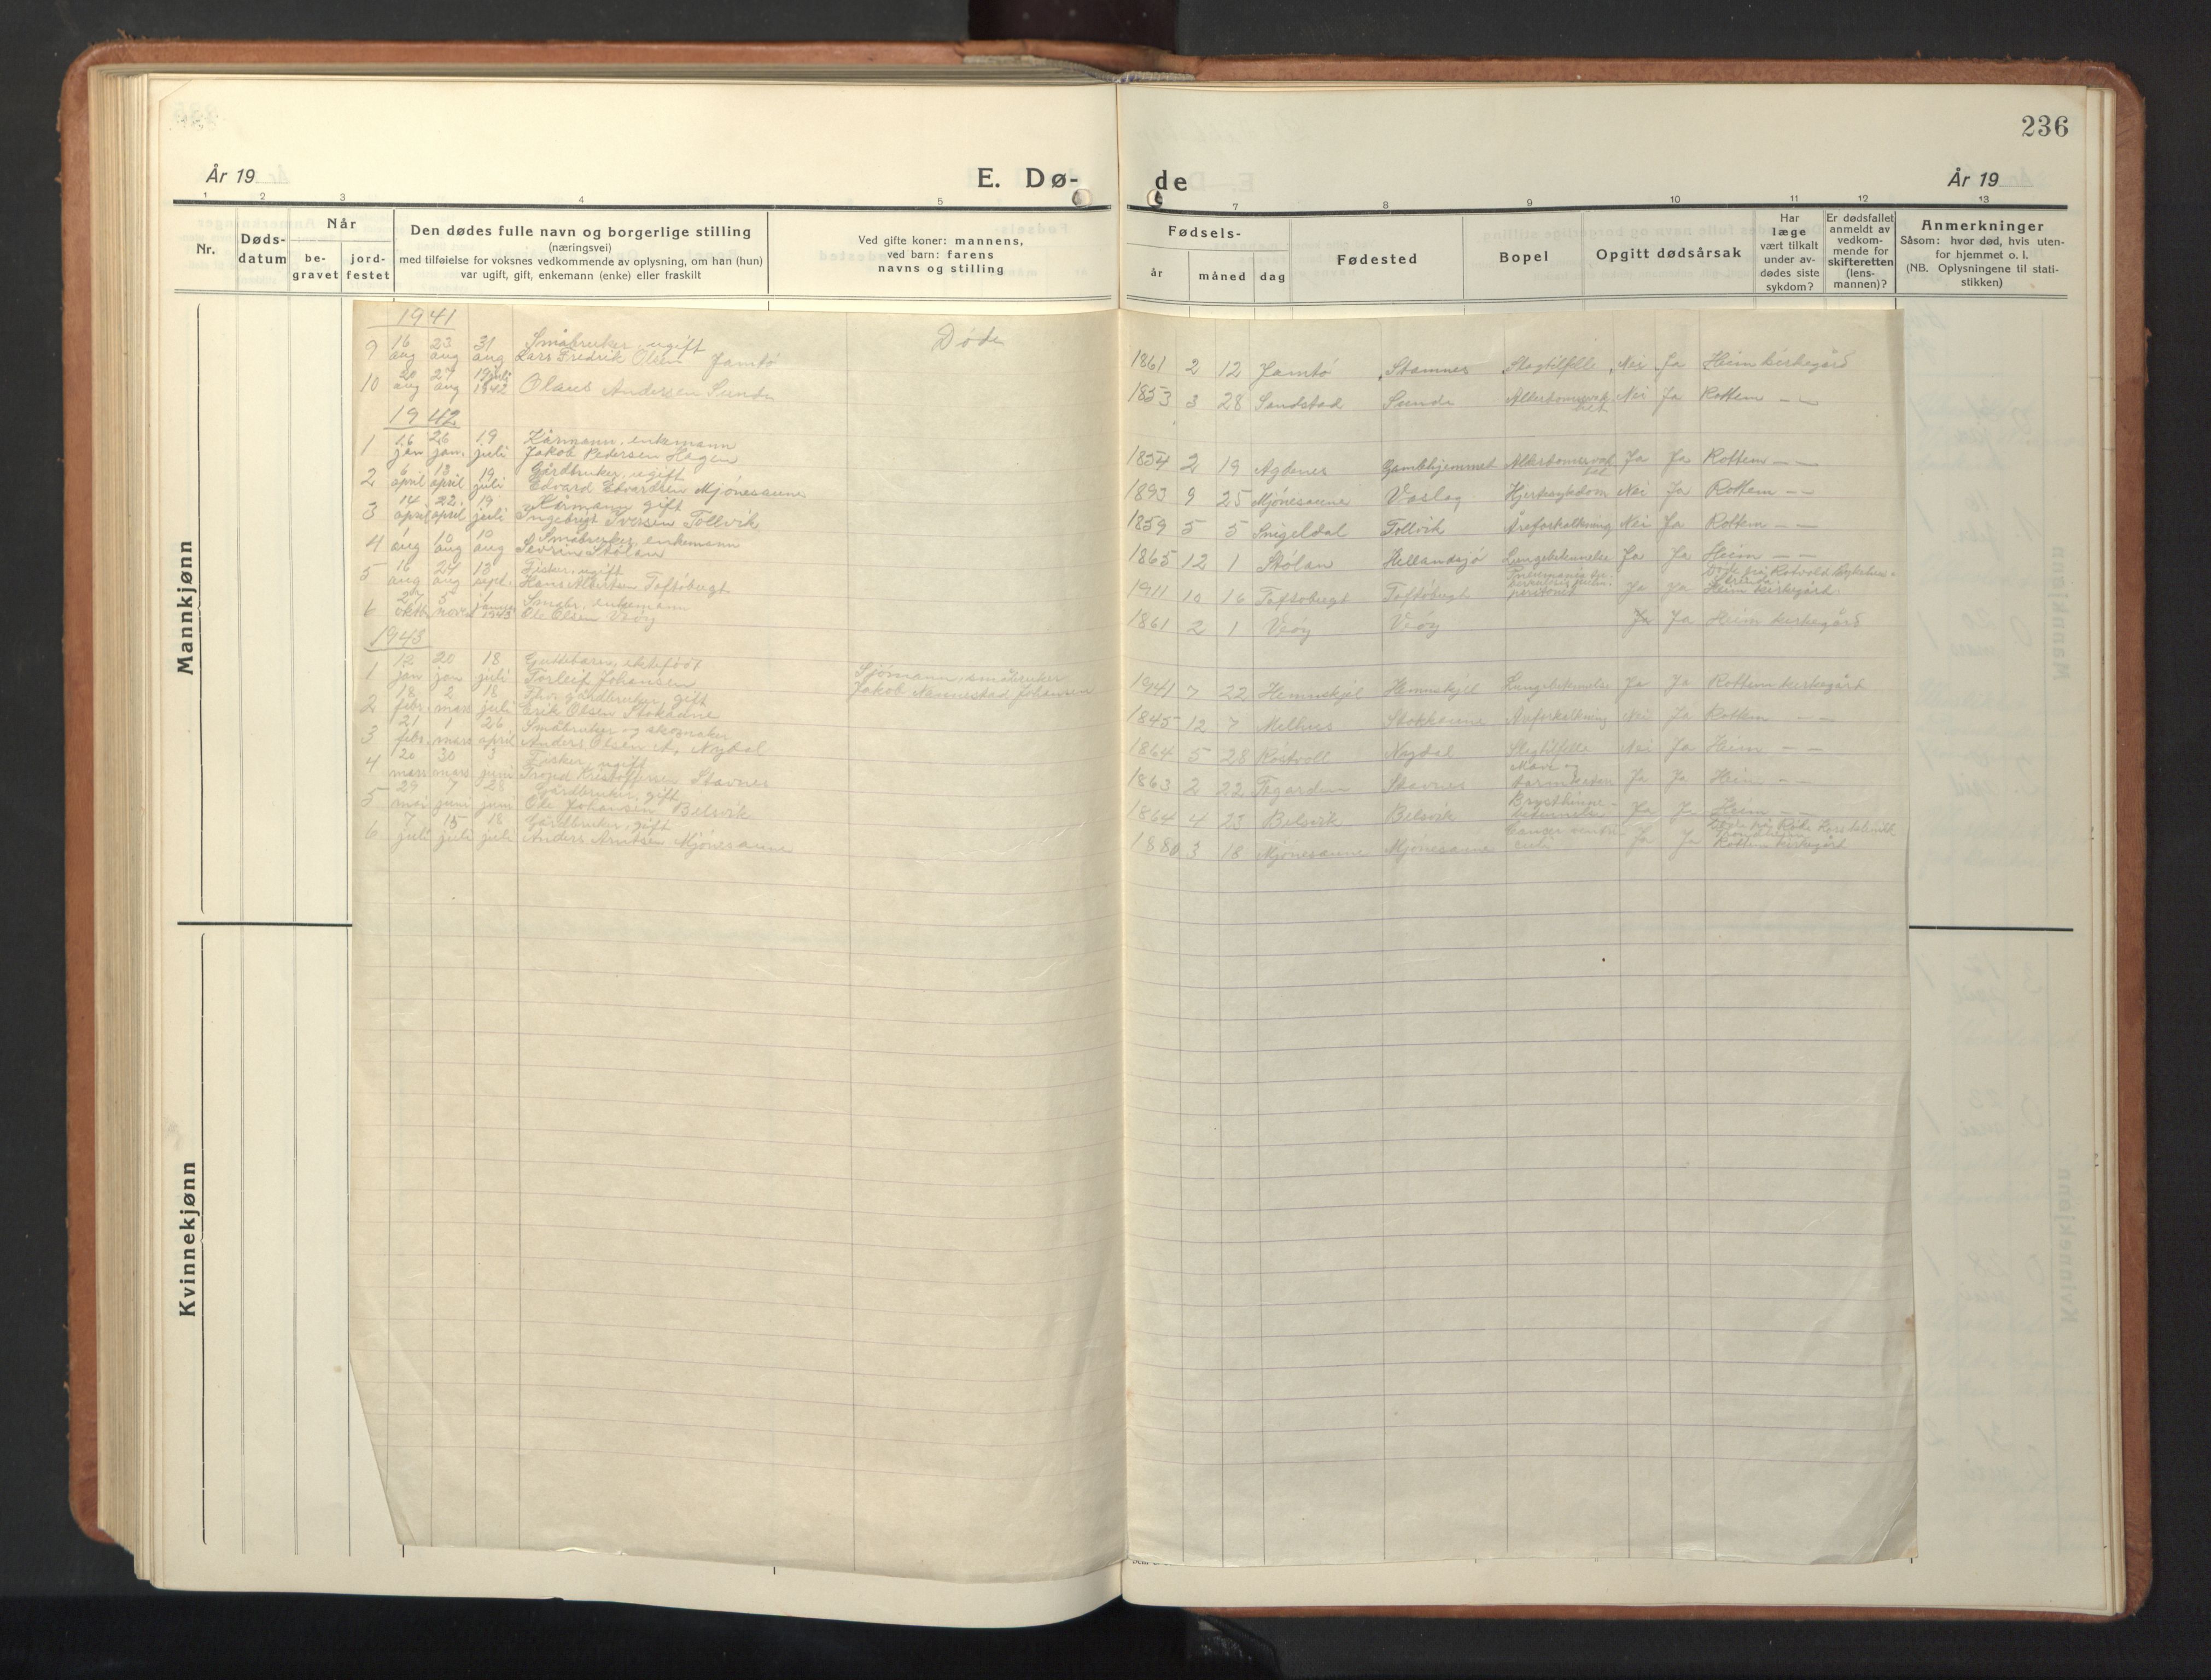 236
År 19
E. Dø-
de
År 19
1 2 3 4 5 7 8 9 10 11 12 13
Nr.
Døds-
datum
Når
be-
gravet
jord-
festet
Den dødes fulle navn og borgerlige stilling
(næringsvei)
med tilføielse for voksnes vedkommende av oplysning, om han (hun)
var ugift, gift, enkemann (enke) eller fraskilt
Ved gifte koner: mannens,
ved barn: farens
navns og stilling
Fødsels-
år
måned
dag
Fødested
Bopel
Opgitt dødsårsak
Har
læge
vært tilkalt
under av-
dødes siste
sykdom?
Er dødsfallet
anmeldt av
vedkom-
mende for
skifteretten
(lens-
mannen)?
Anmerkninger
Såsom: hvor død, hvis uten-
for hjemmet o. l.
(NB. Oplysningene til stati-
stikken)
Mannkjønn
Kvinnekjønn
Døde
1941
9 16 aug 23 aug 31 aug Småbruker, ugift
Lars Fredrik Olsen Jamtø 1861 2 12 Jamtø Stamnes Slagtilfelle Nei Ja Heim kirkegård
10 20 aug 27 aug 19 juli 1942 Olaus Andersen Sunde 1853 3 28 Sandstad Sunde Nei Ja Rottem — —
1942
1 16 jan 26 jan. 19 juli Kårmann, enkemann
Jakob Pedersen Hagen 1854 2 19 Agdenes Gamlehjemmet Ja Ja Rottem — —
2 6 april 13 april 19 juli Gårdbruker, ugift
Edvard Edvardsen Mjønesaune 1893 9 25 Mjønesaune Vaslag Hjertesykdom Nei Ja Rottem — —
3 14 april 22 april 19 juli Kårmann gift
Ingebrigt Iversen Tollvik 1859 5 5 Snigeldal Tollvik Åreforkalkning Nei Ja Rottem — —
4 1 aug 10 aug 10 aug Småbruker, enkemann
Sevrin Stølan 1865 12 1 Stølan Hellandsjø Lungebetennelse Ja Ja Heim — —
5 16 aug 24 aug 13 sept. Fisker, ugift
Hans Albertsen Toftøbugt 1911 10 16 Toftøbugt Toftøbugt Ja Ja Heim kirkegård.
6 27 okt 5 nov. 1 januar 1943 Småbr., enkemann
Ole Olsen Veøy 1861 2 1 Veøy Veøy Ja Ja Heim kirkegård
1943
1 12 jan 20 jan 18 juli Guttebarn, ektefødt
Torleif Johansen Sjømann, småbruker
Jakob Nannestad Johansen 1941 7 22 Hemnskjel Hemnskjel Lungebetennelse Ja Ja Rottem kirkegård
2 18 febr. 2 mars 18 juli Fhv. gårdbruker, gift
Erik Olsen Stokaune 1845 12 7 Melhus Stokkaune Åreforkalkning Nei Ja Rottem — —
3 21 febr. 1 mars 26 april Småbruker og skomaker
Anders Olsen Nygdal 1864 5 28 Røstvoll Nygdal Slagtilfelle Nei Ja Heim — —
4 20 mars 30 mars 3 juni Fisker, ugift
Kristoffersen Stavnes 1863 2 22 Stavnes Mave og Ja Ja Heim — —
5 29 mai 7 juni 28 juni Gårdbruker, gift
Ole Johansen Belsvik 1864 4 23 Belsvik Belsvik Ja Ja Heim — —
6 7 juli 15 juli 18 juli Gårdbruker, gift
Anders Arntsen Mjønesaune 1880 3 18 Mjønesaune Mjønesaune Cancer ventri-
culi Ja Ja Rottem kirkegård